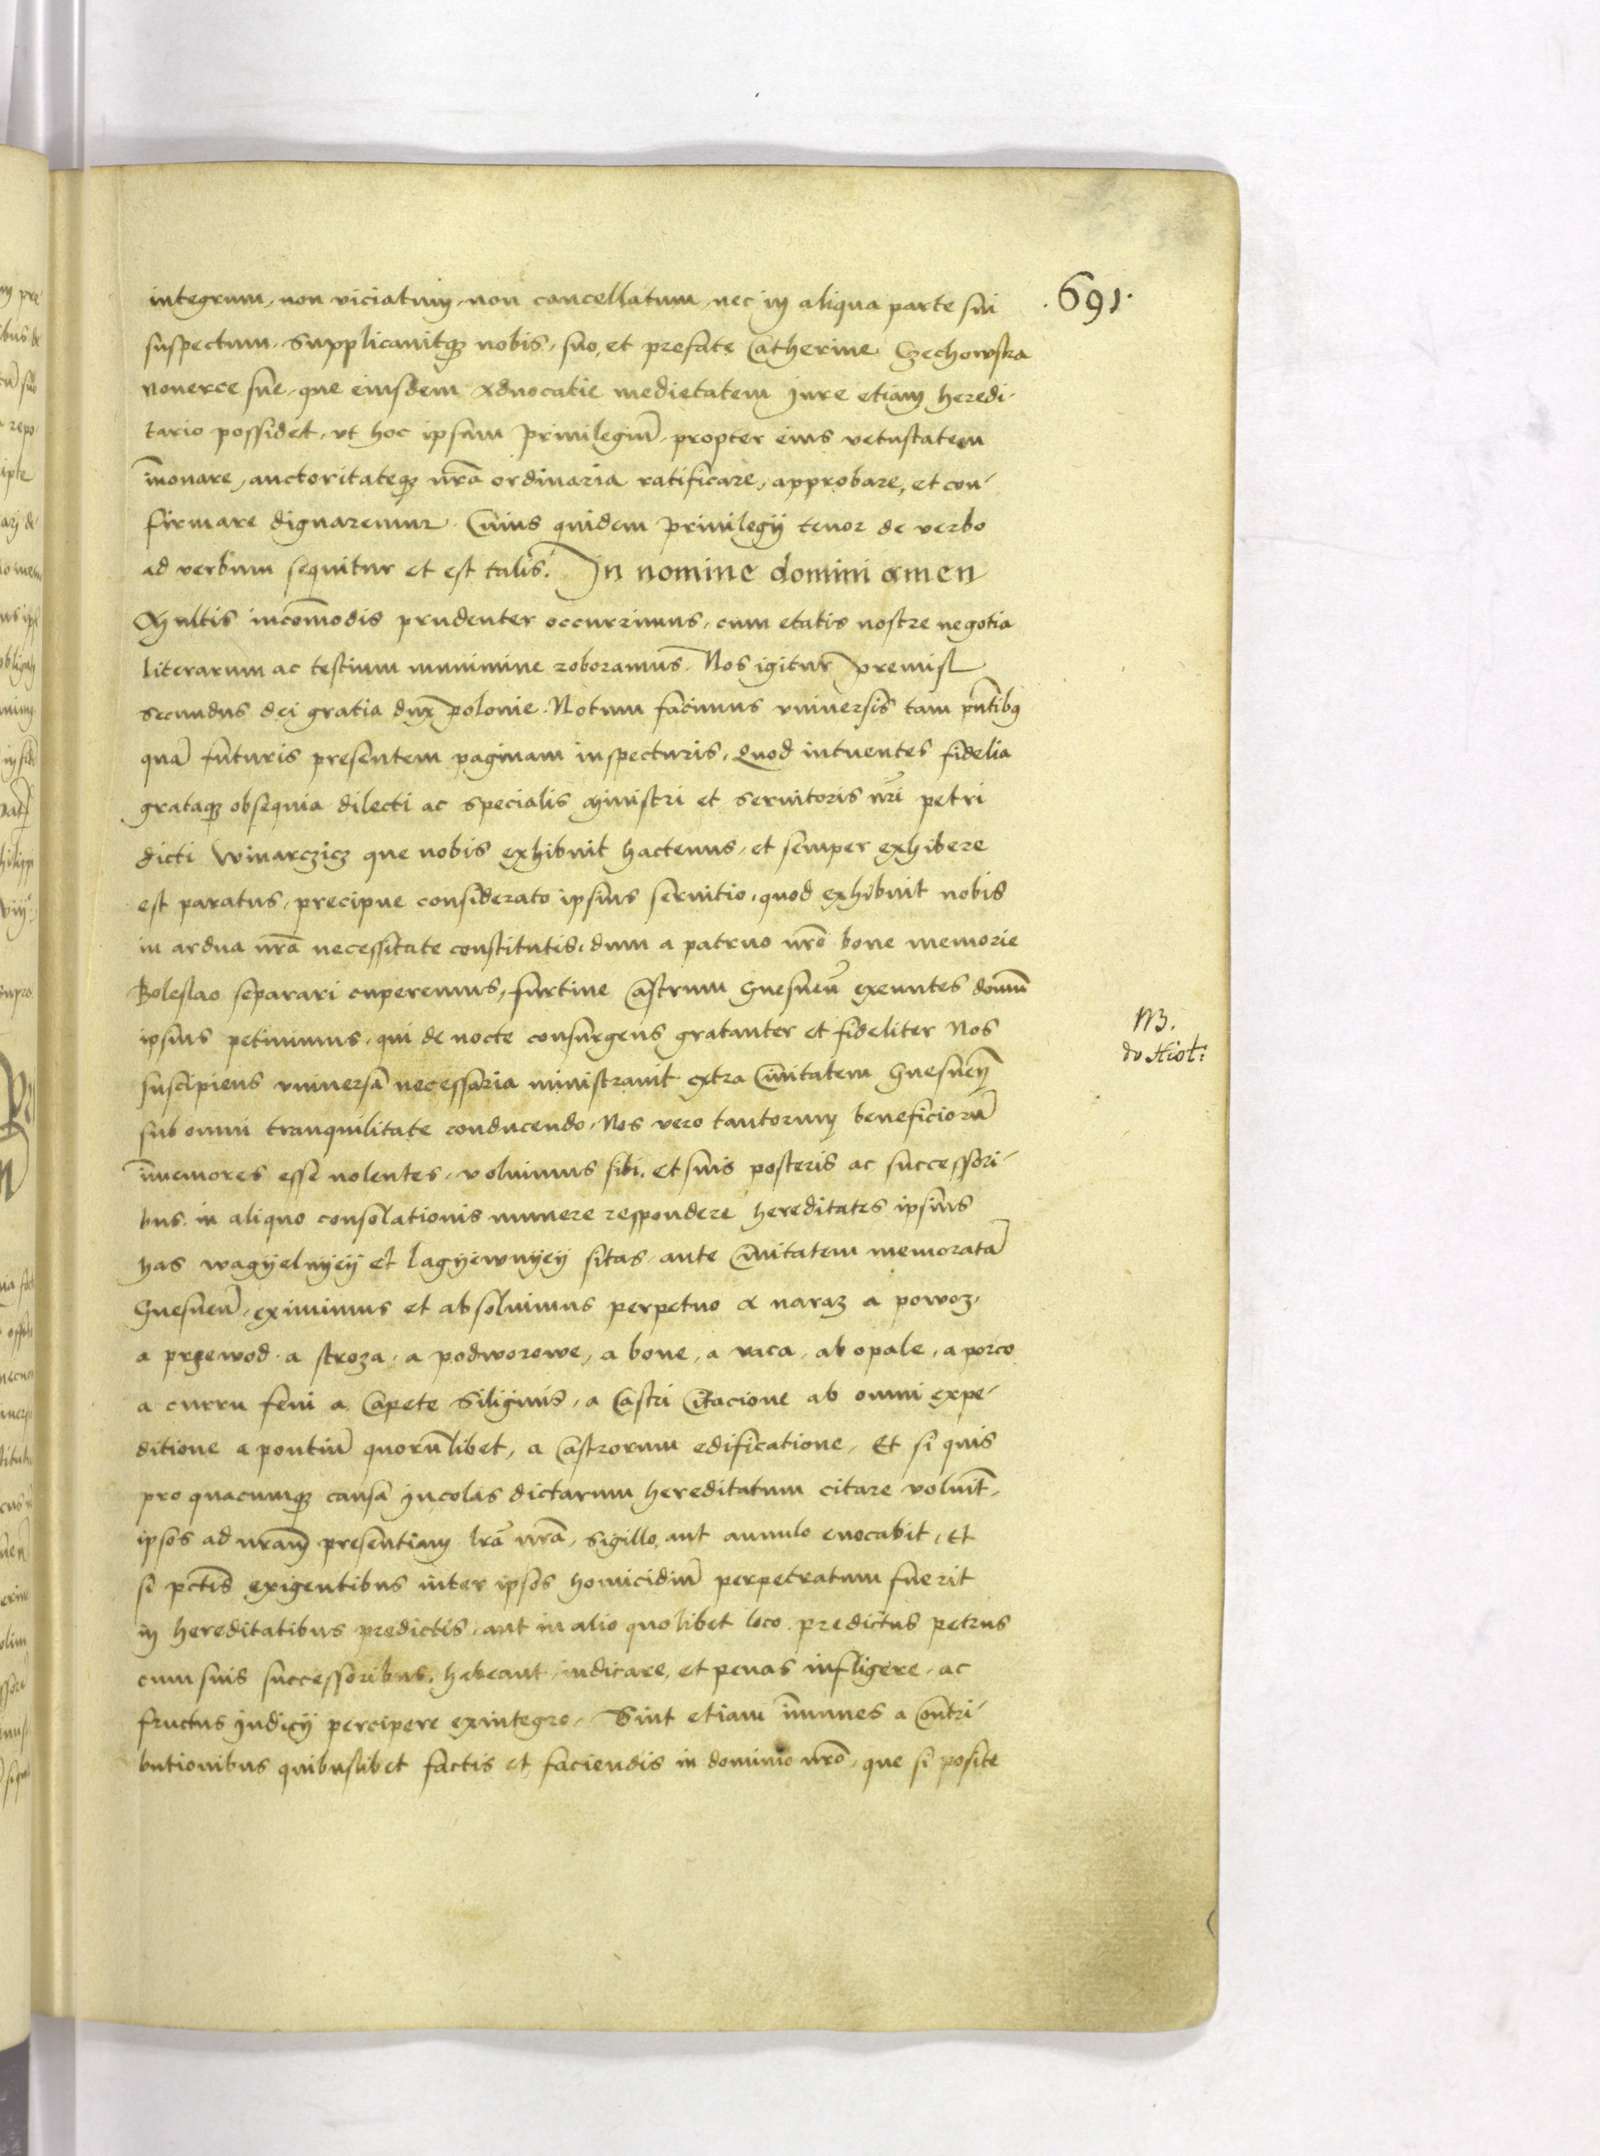 .691.
integrum, non viciatum, non cancellatum, nec in aliqua parte sui
suspectum. Supplicavitq3 nobis, suo, et prefate Catherine Czechowska
Noverce sue, que eiusdem Advocatie medietatem jure etiam heredi-
tario possidet, ut hoc ipsum Privilegiū, propter eius vetustatem
īnovare, auctoritateq3 nrā ordinaria ratificare, approbare, et con-
firmare dignaremur. Cuius quidem Privilegij tenor de verbo
ad verbum sequitur et est talis. In nomine domini amen
Multis incōmodis prudenter occurrimus, cum etatis nostre negotia
literarum ac testium munimine roboramus. Nos igitur Premisl
secundus dei gratia dux Polonie. Notum facimus universis tam pn̄tibus
quā futuris presentem paginam inspecturis, Quod intuentes fidelia
grataq3 obsequia dilecti ac specialis Ministri et servitoris nrī Petri
dicti Winarczicz que nobis exhibuit hactenus, et semper exhibere
est paratus, precipue considerato ipsius servitio, quod exhibuit nobis
in ardua nrā necessitate constitutis, dum a patruo nrō bone memorie
Boleslao separari cuperemus, furtive Castrum Gnesneñ exeuntes domū
ipsius petivimus, qui de nocte consurgens gratanter et fideliter Nos
suscipiens universa necessaria ministravit extra Civitatem Gnesneñ
sub omni tranquilitate conducendo, Nos vero tantorum beneficiorū
īmemores esse nolentes, voluimus sibi, et suis posteris ac successori-
bus in aliquo consolationis munere respondere hereditates ipsius
has wagyelnyey et Lagyewnyey sitas, ante Civitatem memoratā
Gnesneñ, eximimus et absolvimus perpetuo a naraz a powoz,
a przewod, a stroza, a podworowe, a bove, a vaca, ab opale, a porco
a curru feni a Capete Siliginis, a Castri Citacione ab omni expe-
ditione a pontiū quorūlibet, a Castrorum edificatione, Et si quis
pro quacumq3 causā Incolas dictarum hereditatum citare voluit̄,
ipsos ad nrām presentiam lrā nrā, sigillo, aut annulo evocabit, Et
si pctīs exigentibus inter ipsos homicidiū perpetratum fuerit
in hereditatibus predictis, aut in alio quolibet loco. predictus Petrus
cum suis successoribus, habeant iudicare, et penas infligere, ac
fructus Judicij percipere exintegro, Sint etiam īmunes a Contri-
butionibus quibuslibet factis et faciendis in dominio nrō, que si posite
NB.